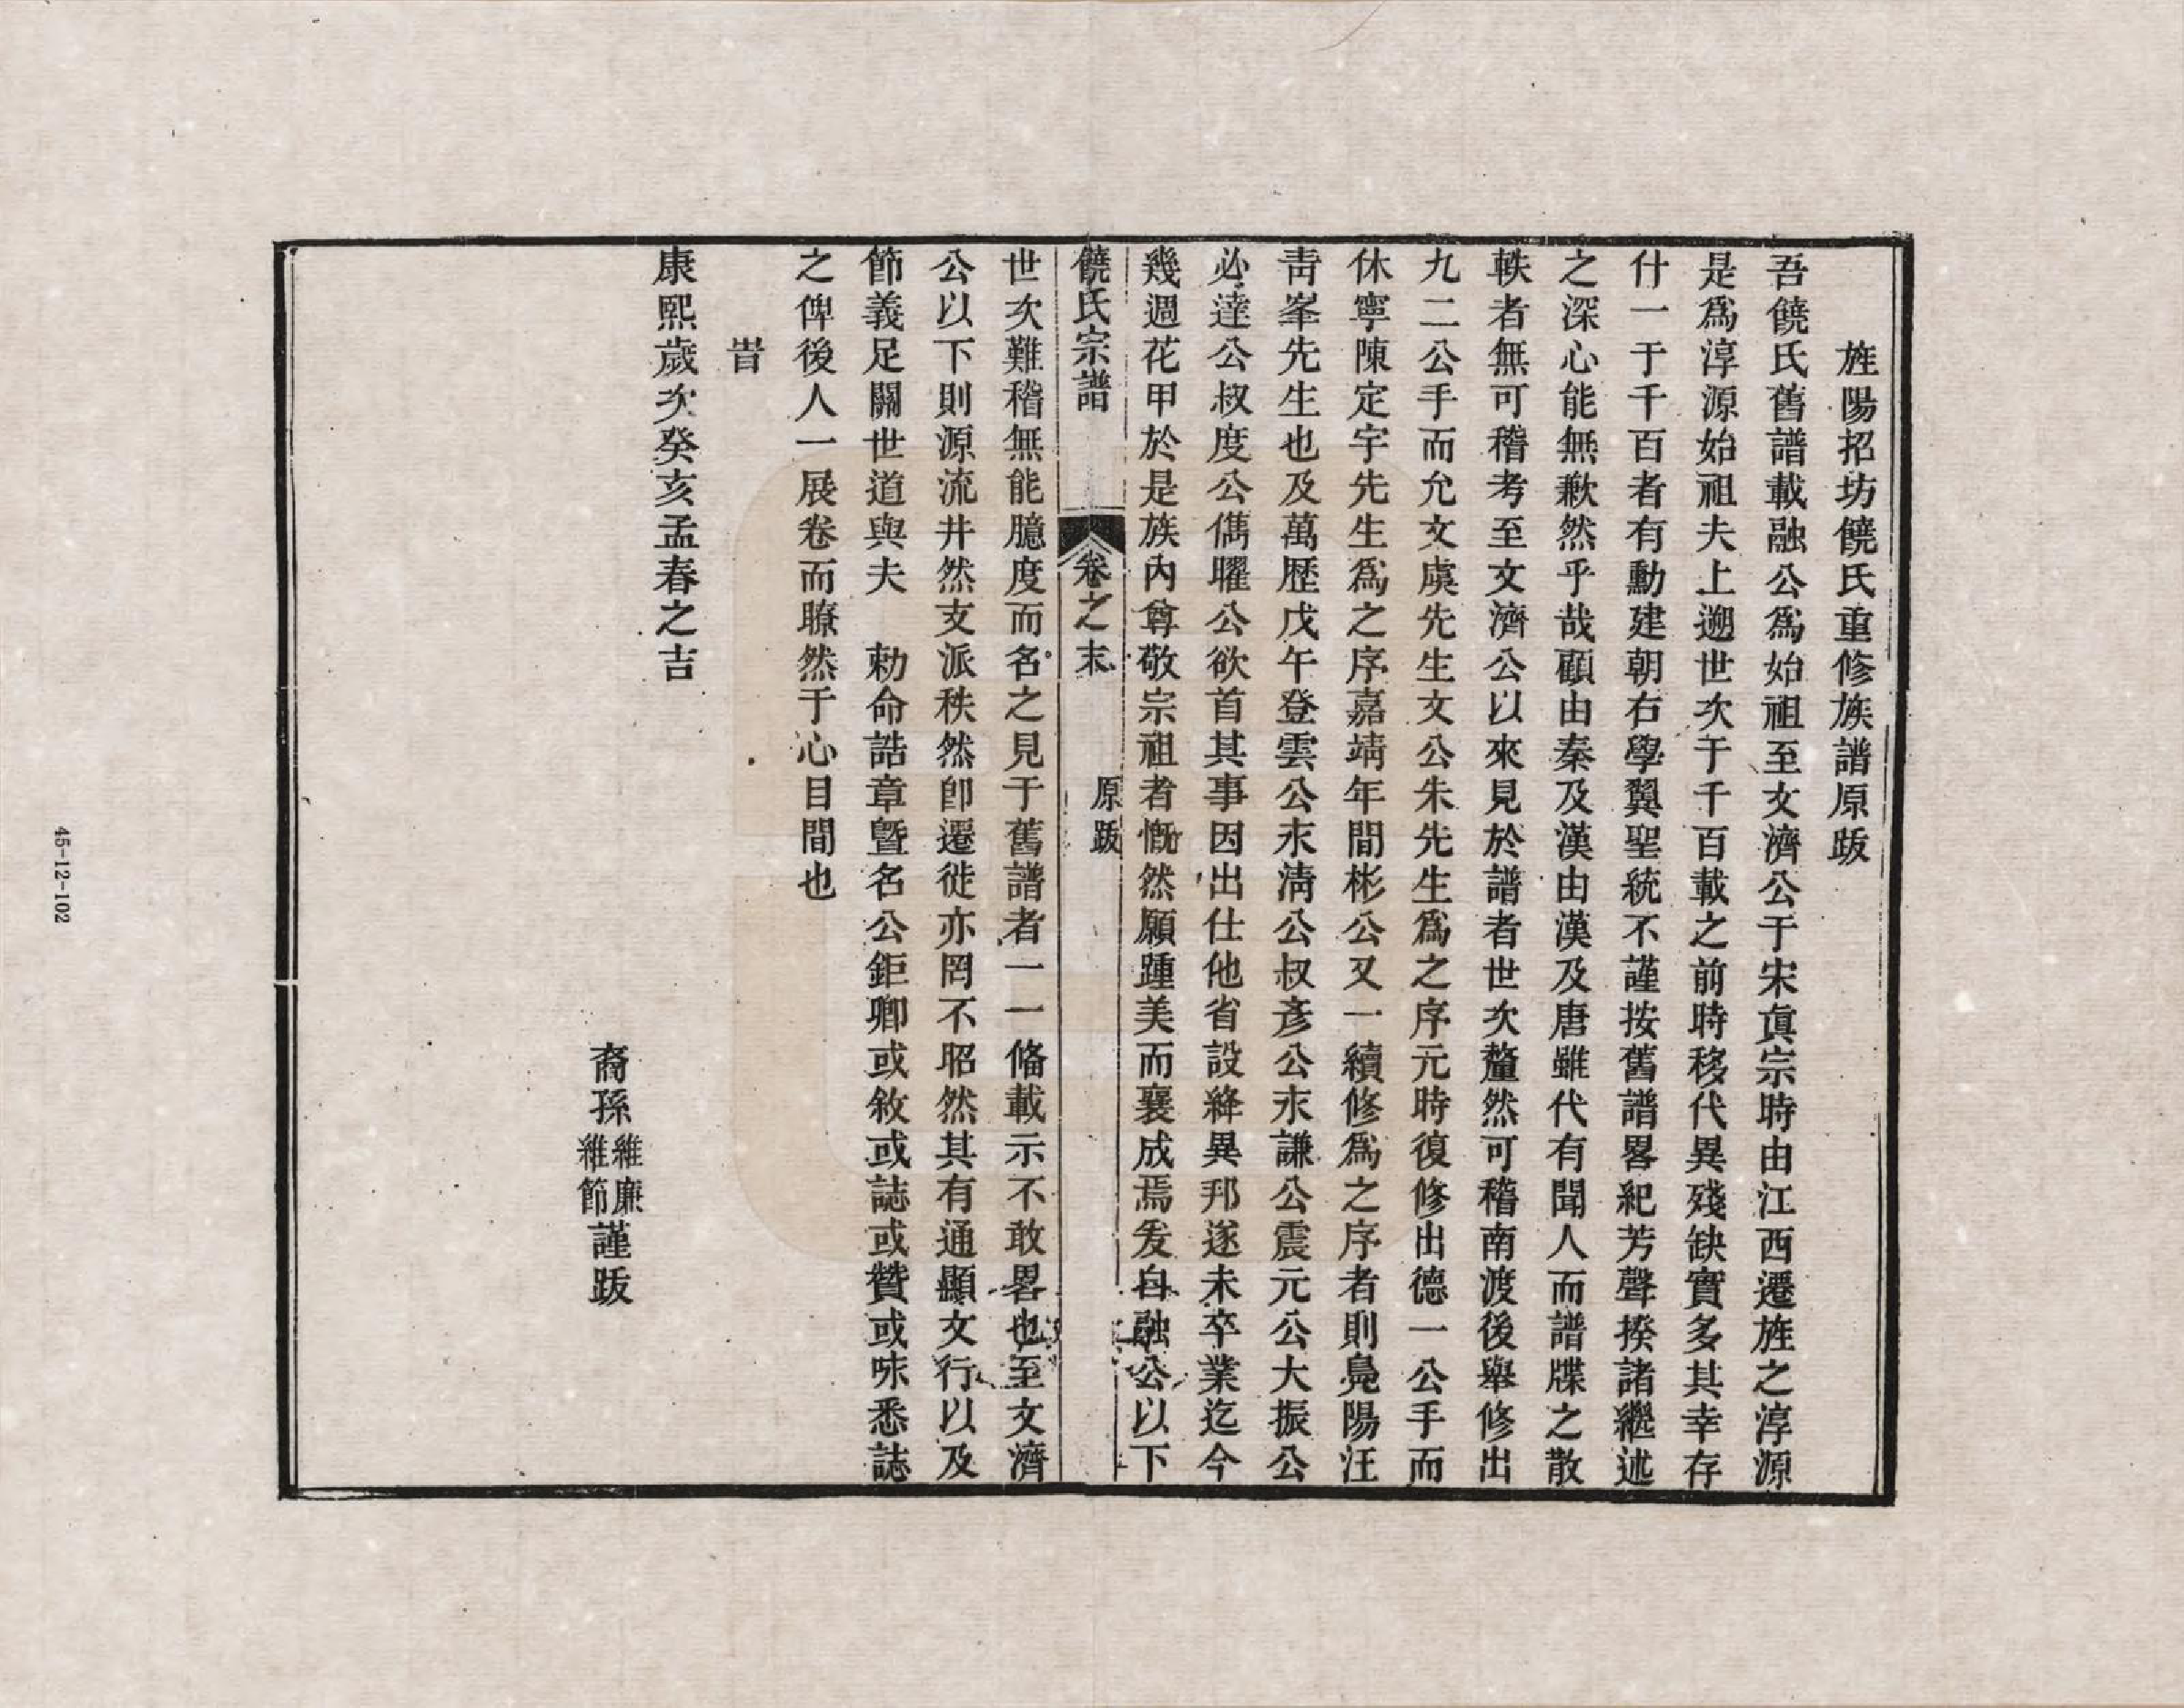 旌陽招坊饒氏重修族譜原跋
吾饒氏舊譜載融公爲始祖至文濟公于宋眞宗時由江西遷旌之淳源
是爲淳源始祖夫上遡世次于千百載之前時移代異殘缺實多其幸存
什一于千百者有勳建朝右學翼聖統不謹按舊譜畧紀芳聲揆諸繼述
之深心能無歉然乎哉顧由秦及漢由漢及唐雖代有聞人而譜牒之散
軼者無可稽考至文濟公以來見於譜者世次釐然可稽南渡後舉修出
九二公手而允文虞先生文公朱先生爲之序元時復修出德一公手而
休寧陳定宇先生爲之序嘉靖年間彬公又一續修爲之序者則鳧陽汪
靑峯先生也及萬歷戊午登雲公永淸公叔彥公永謙公震元公大振公
必達公叔度公儁曜公欲首其事因出仕他省設絳異邦遂未卒業迄今
幾週花甲於是族內尊敬宗祖者慨然願踵美而襄成焉爰自融公以下
饒氏宗譜 卷之末 原跋
世次難稽無能臆度而名之見于舊譜者一一俻載示不敢畧也至文濟
公以下則源流井然支派秩然卽遷徙亦罔不昭然其有通顯文行以及
節義足關世道與夫 勅命誥章曁名公鉅卿或敘或誌或贊或咏悉誌
之俾後人一展卷而瞭然于心目間也
旹
康熙歲次癸亥孟春之吉
裔孫維廉維節謹跋
45-12-102